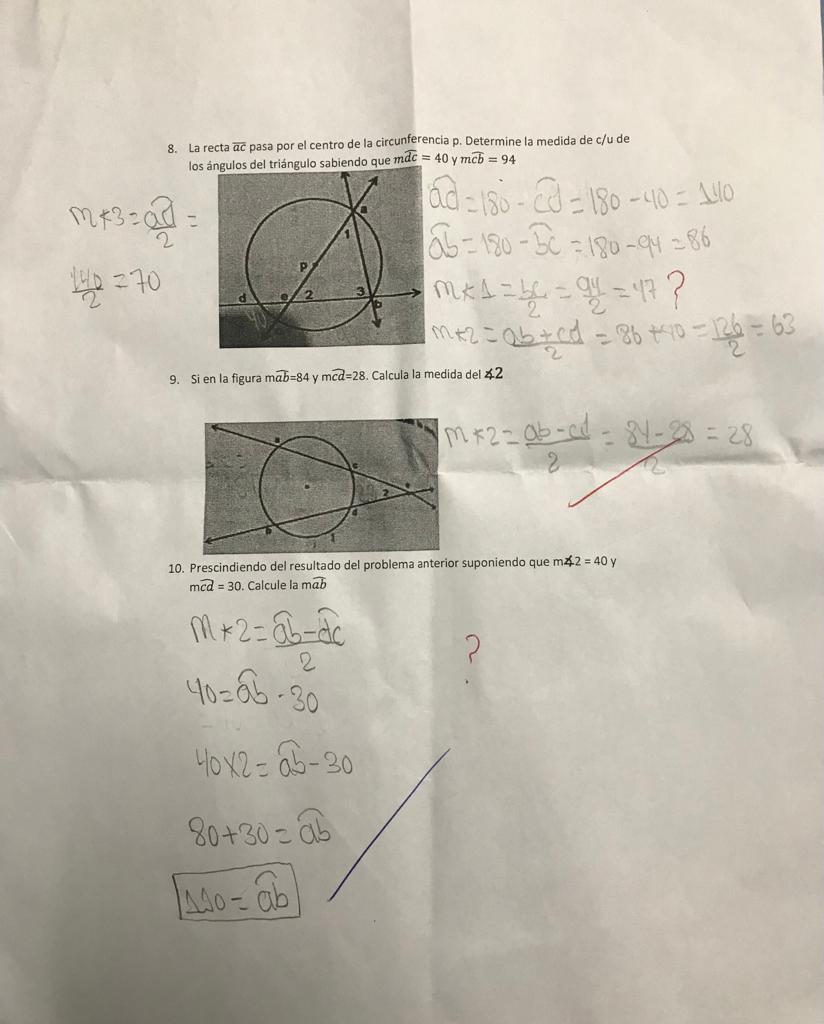 8. La recta a͞c pasa por el centro de la circunferencia p. Determine la medida de c/u de
los ángulos del triángulo sabiendo que md͡c = 40 y mc͡b = 94
m∡3 = a͡d/2 =
140/2 = 70
a
1
p
d
e
2
3
b
a͡d = 180 - c͡d = 180 - 40 = 140
a͡b = 180 - b͡c = 180 - 94 = 86
m∡1 = bc/2 = 94/2 = 47 ?
m∡2 = ab+cd/2 = 86+40 = 126/2 = 63
9. Si en la figura ma͡b=84 y mc͡d=28. Calcula la medida del ∡2
a
c
2
e
d
b
1
m∡2 = ab-cd/2 = 84-28/2 = 28
10. Prescindiendo del resultado del problema anterior suponiendo que m∡2 = 40 y
mc͡d = 30. Calcule la ma͡b
m∡2 = a͡b-d͡c/2
?
40 = a͡b - 30
40x2 = a͡b - 30
80+30 = a͡b
110 = a͡b